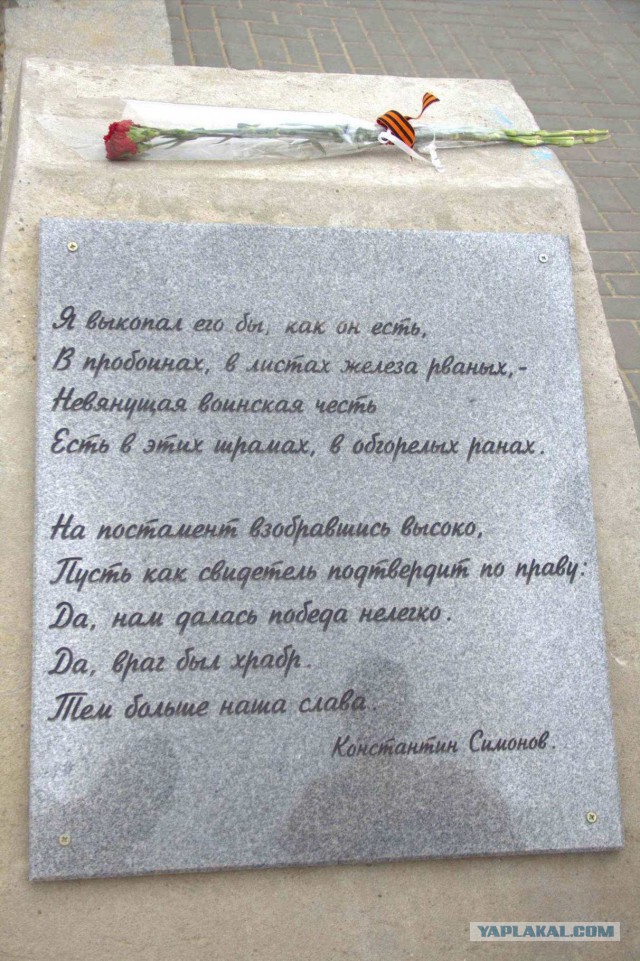 Я выкопал его бы, как он есть,
В пробоинах, в листах железа рваных,-
Невянущая воинская честь
Есть в этих шрамах, в обгорелых ранах.
На постамент взобравшись высоко,
Пусть как свидетель подтвердит по праву:
Да, нам далась победа нелегко.
Да, враг был храбр.
Тем больше наша слава.
Константин Симонов.
YAPLAKAL.COM